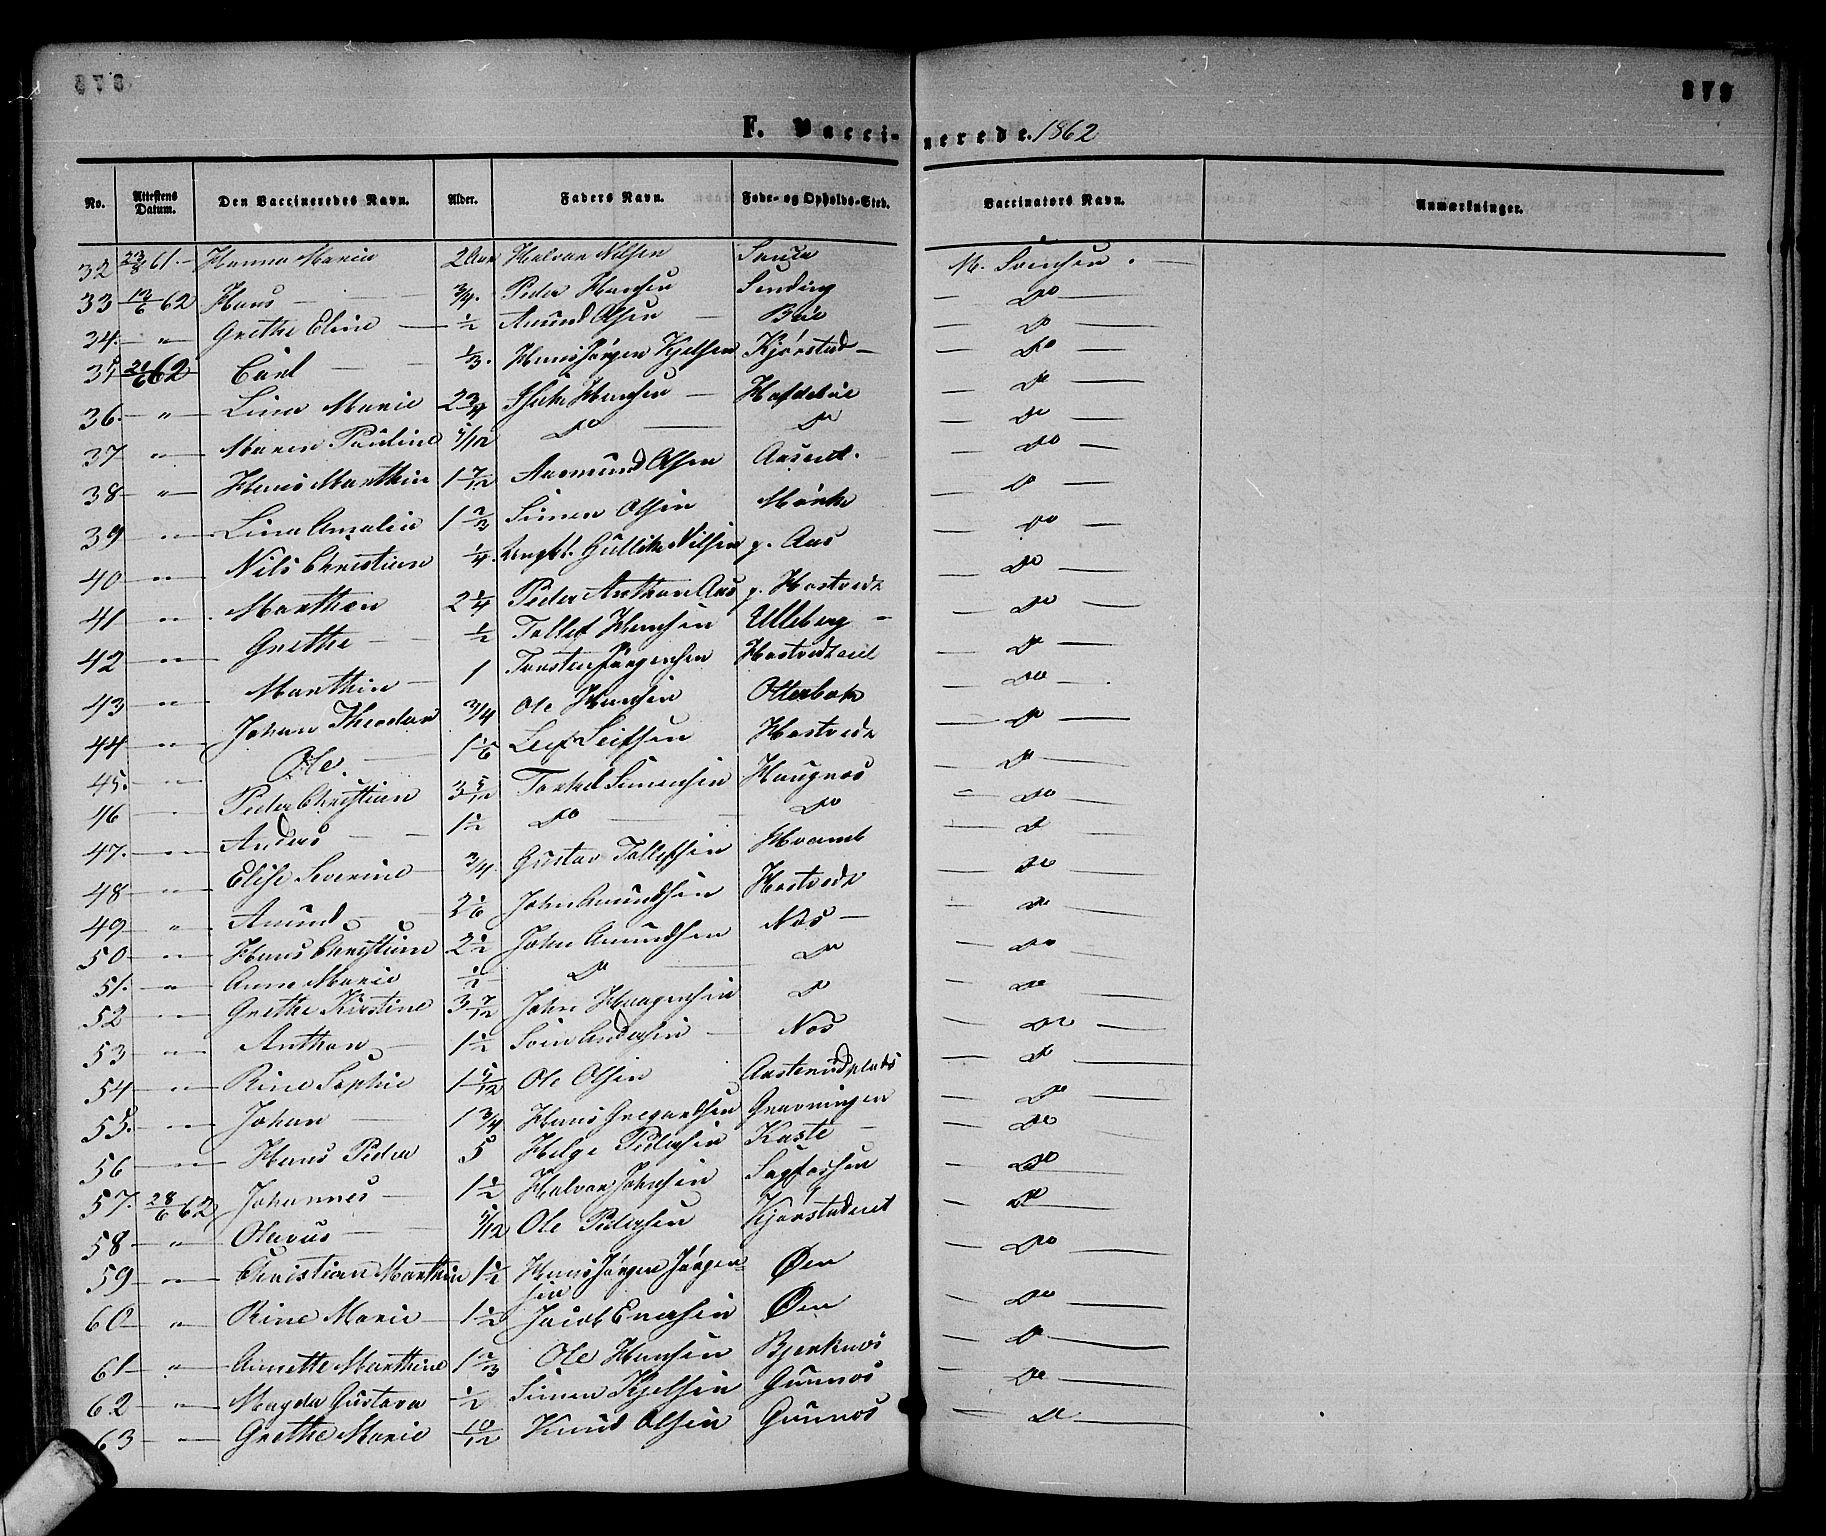 378 379
F. Vacci- nerede. 1862
No. Attestens Datum. Den Vaccineredes Navn. Alder. Faders Navn. Føde- og Opholds-Sted. Vaccinators Navn. Anmærkninger.
32 23/8 61. Hanna Maria 2 Aar Halvor Nilsen M. Svensen
33 13/6 62 Hans 3/4. Peder Hansen Do
34. " Grethe Eline 1/2 Amund Olsen Bøe Do
35 21/6 62 Carl 1/3. Hans Jørgen Kjelsen Kjørstad Do
36. " Lina Marie 2 3/4 Hansen Do
37 " Maren Pauline /12 Do Do Do
38 " Hans Marthin 1 7/12 Aasmund Olsen Do
39 " Lina Amalia 1 2/3 Simen Olsen Do
40 " Nils Christian 1/4. Ungkl. Gullik Nilsen p. Aas Do
41 " Marthea 2 1/4 Peder Anthon Aas p. Hostvedt Do
42 " Grethe 1/2 Tollef Hansen Ulleberg Do
43 " Marthin 1 Torsten Jørgensen Hostvedteiet Do
44 " Johan Theodor 3/4 Ole Hansen Otterbek Do
45. " Ole 1 1/6 Leif Leifsen Hostvedt Do
46 " Peder Christian 3 5/12 Torkel Simensen Haugnos Do
47. " Anders 1 1/2 Do Do Do
48 " Elise Severine 3/4. Gustav Tollefsen Hvamb Do
49 " Amund 2 1/6 John Amundsen Hostvedt Do
50 " Hans Christian 2 1/2 John Amundsen Nos Do
51. " Anne Marie 1/2 Do Do Do
52 " Grethe Kirstine 3 7/12 John Haagensen Do Do
53 " Anthon 1 1/2 Sven Andersen Nos Do
54 " Rine Sophie 1 /12 Ole Olsen Aasterudplads Do
55. " Johan 1 3/4 Hans Gregardsen Gravningen Do
56 " Hans Peder 5 Helge Pedersen Kaste Do
57. 28/6 62 Johannes 1 1/2 Halvor Johnsen Sagfossen Do
58 " Olavus /12 Ole Pedersen Kjørstadeiet Do
59 " Christian Marthin 1 1/2 Hans Jørgen Jørgen-
sen Øen Do
60 " Rine Marie 1 1/2 Jacob Enersen Øen Do
61 " Annette Marthine 1 2/3 Ole Hansen Bjerknos Do
62 " Magda Gustava 1/2 Simen Kjelsen Gunnos Do
63 " Grethe Marie 10/12 Knud Olsen Gunnos Do